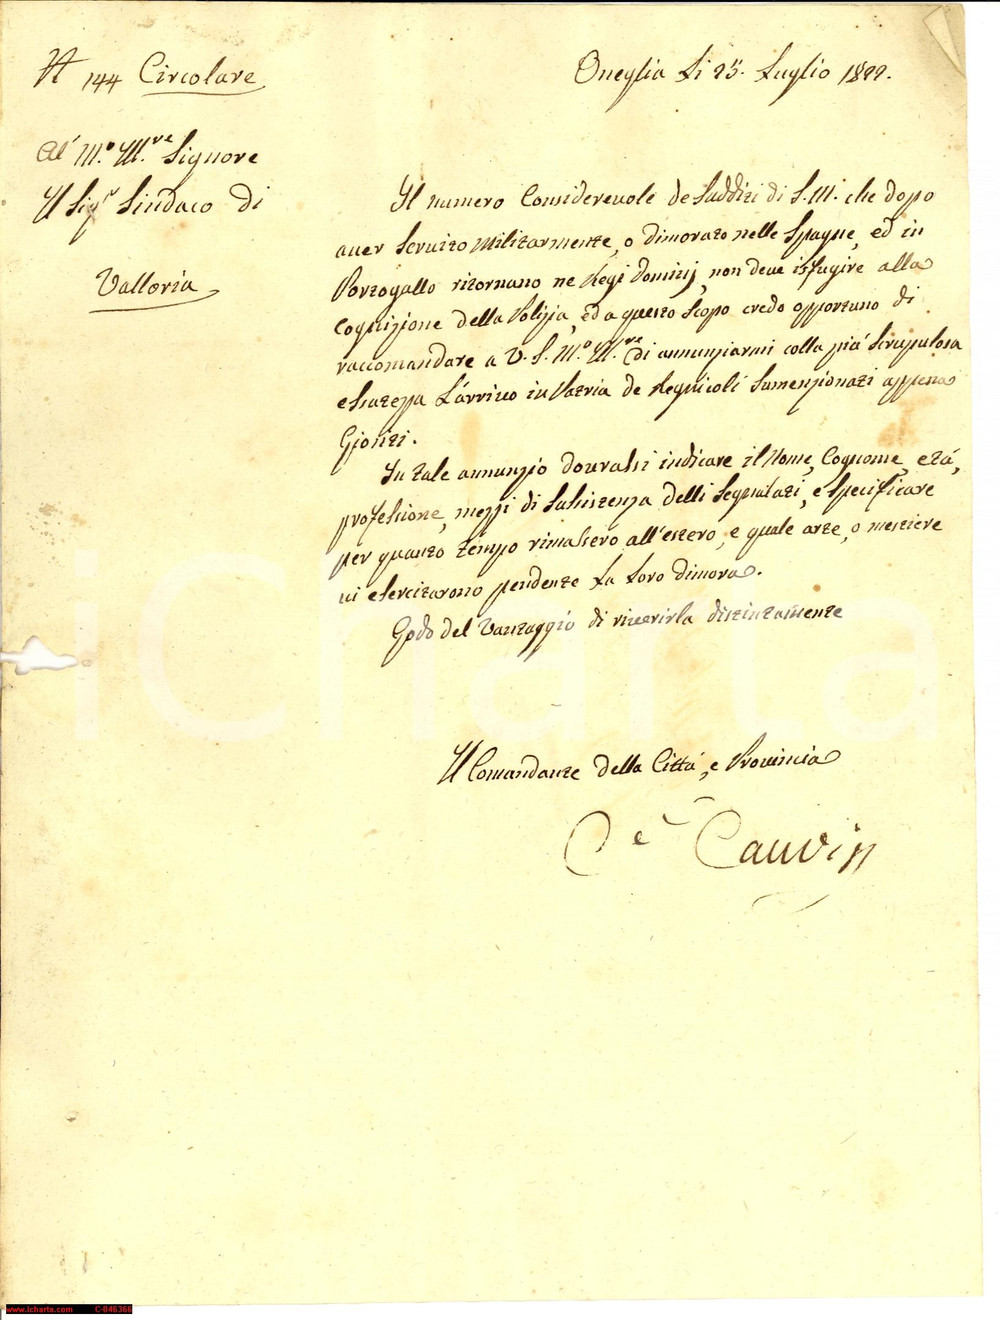 N 144 Circolare
Oneglia Li 25. Luglio 1822.
Al M.º Ill.re Signore
Il Sigr Sindaco di
Valloria
Il numero Considerevole de Sudditi di S.M. che dopo
aver Servito Militarmente, o dimorato nelle Spagne, ed in
Portogallo ritornano ne Regi Dominj, non deve isfugire alla
Cognizione della Polizia, ed a questo Scopo credo opportuno di
raccomandare a V.S. M.º Ill.re di annunziarmi colla più Scrupolosa
esatezza L'arrivo in Patria de Regnicoli Sumenzionati appena
Gionti.
In tale annunzio dovrassi indicare il Nome, Cognome, età,
professione, mezzi di Sussistenza delli Segnalati, e Specificare
per quanto tempo rimassero all'estero, e quale arte, o mestiere
vi esercitarono pendente La Loro dimora.
Godo del Vantaggio di riverirla distintamente
Il Comandante della Città, e Provincia
Cauvin
iCharta
www.icharta.com C-046366